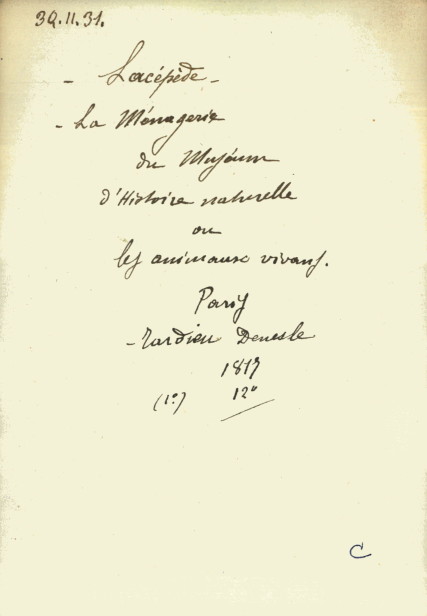 39.11.31.
- Lacépède -
- La Ménagerie
du Muséum
d'Histoire naturelle
ou
les animaux vivans.
Paris
- Tardieu Denesle
1817
(1º) 12º
C